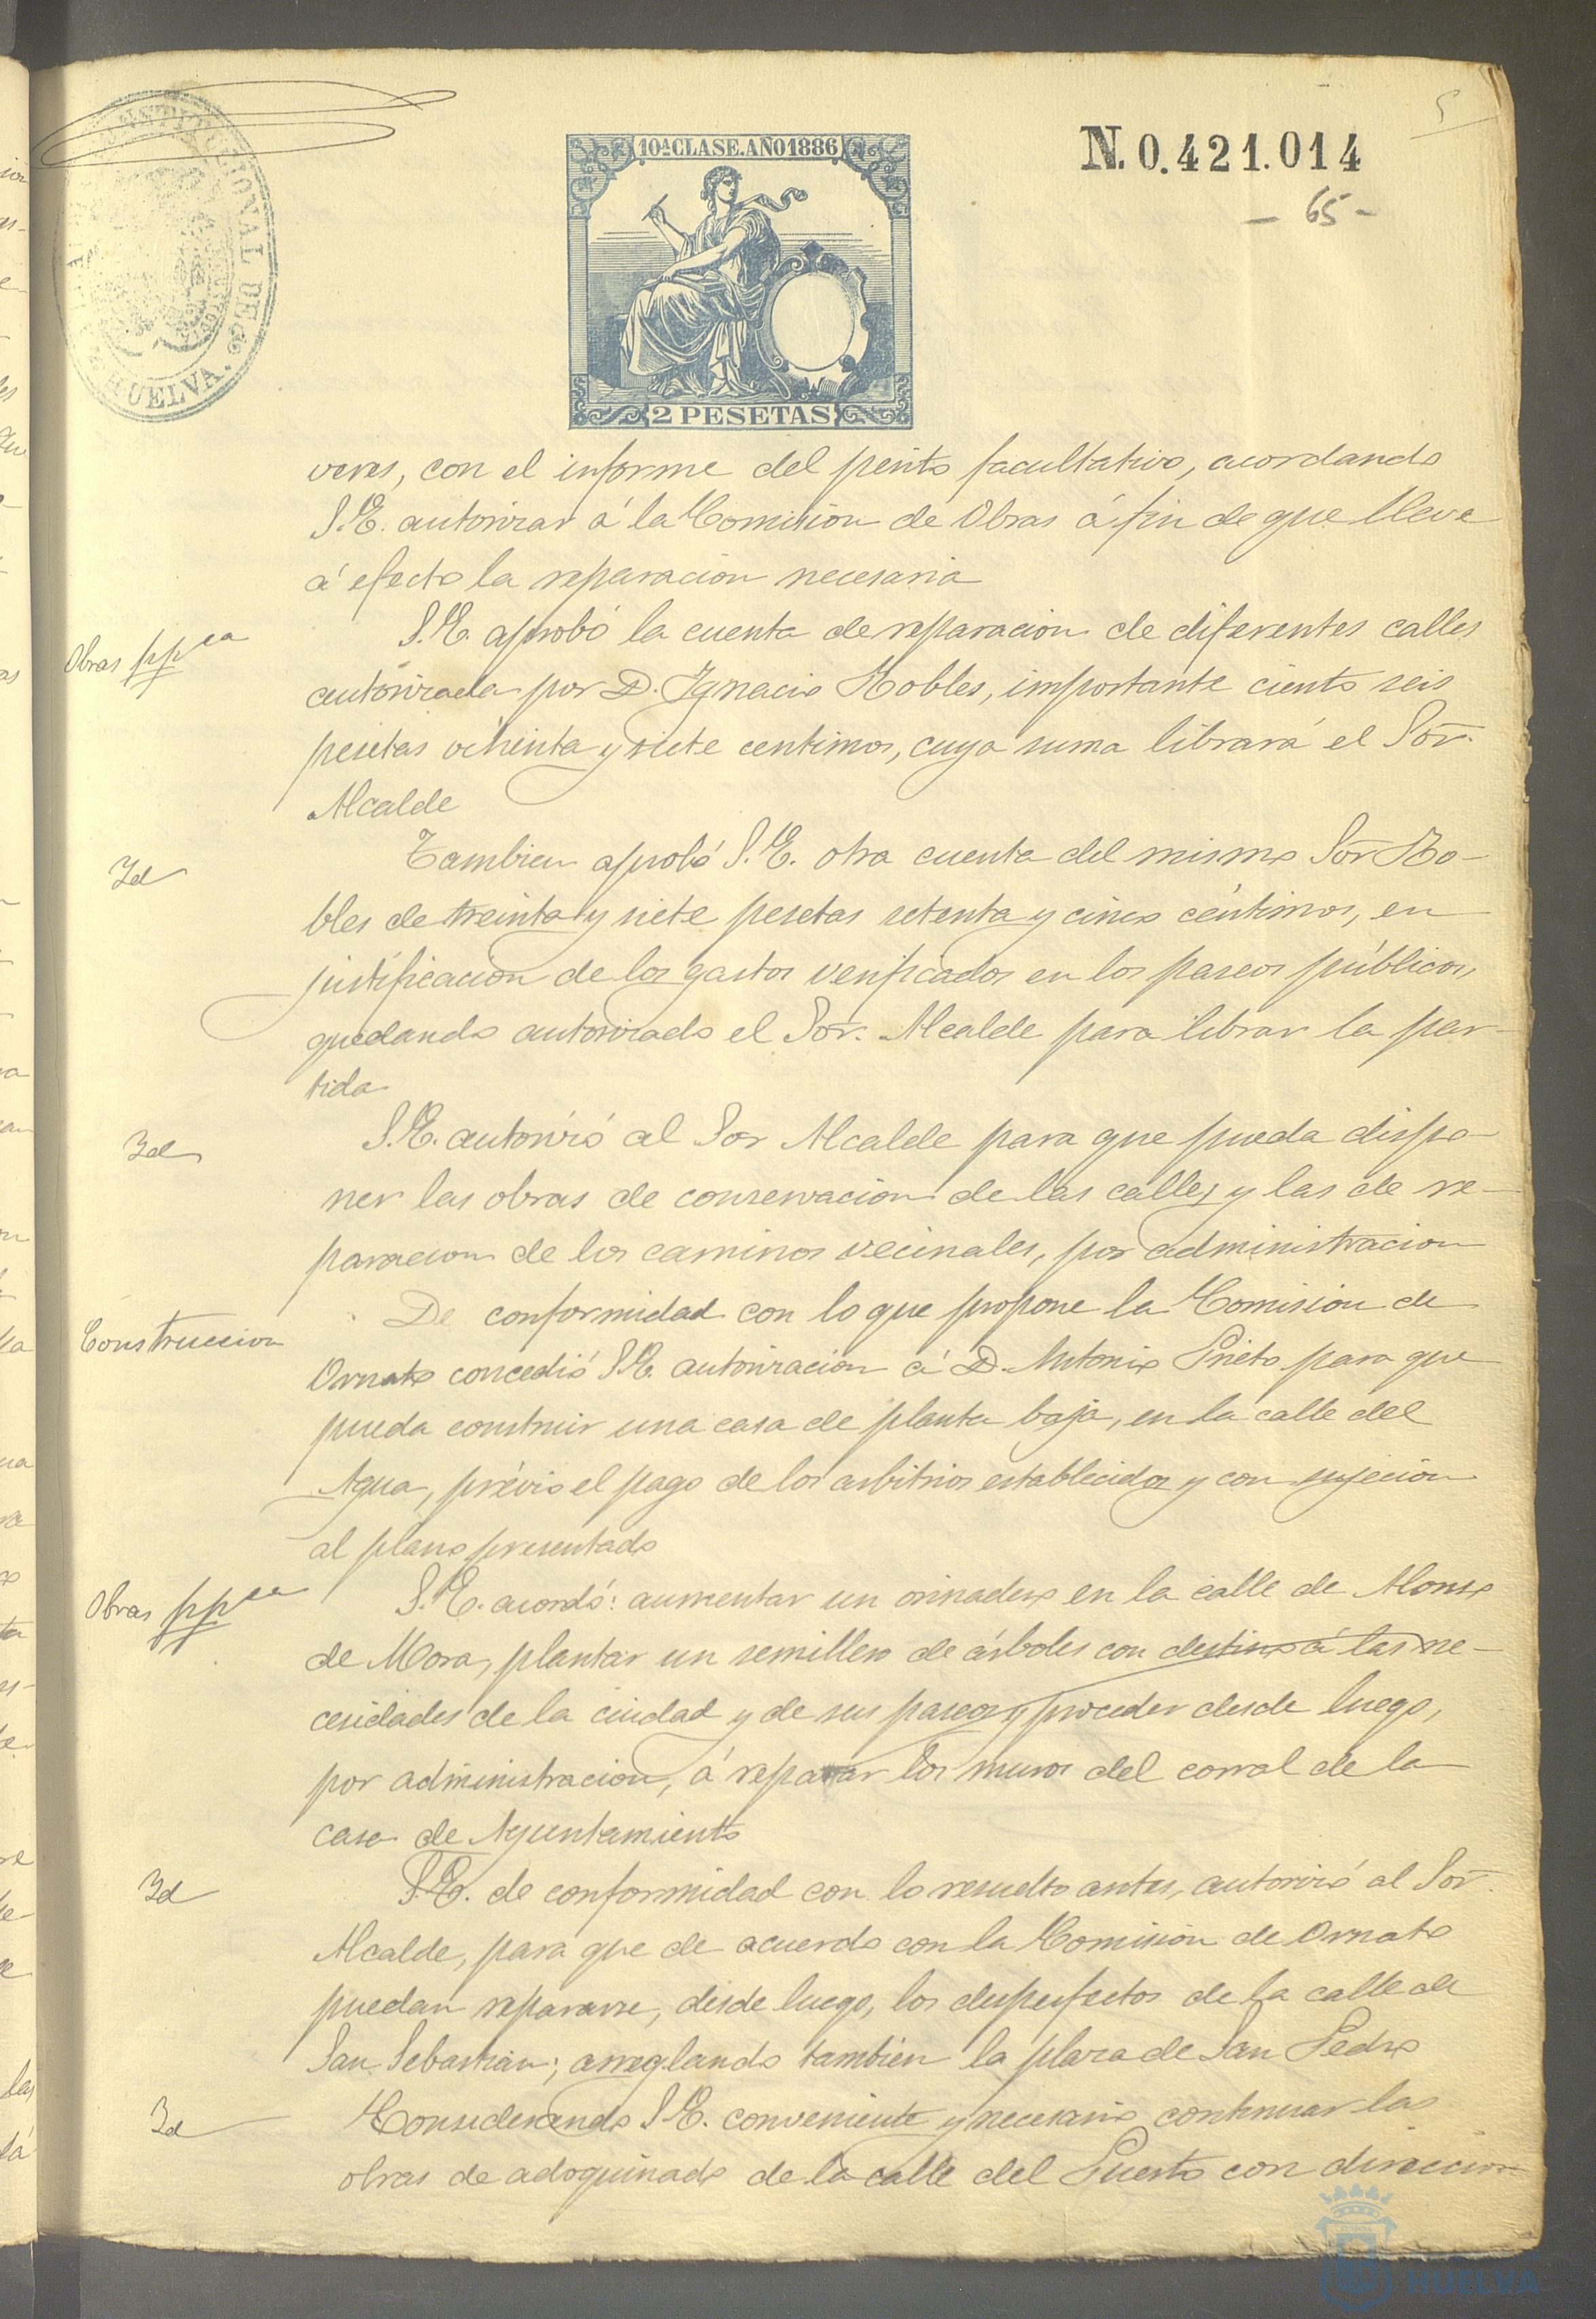 5
CONSTITUCIONAL DE
HUELVA.
10ª CLASE. AÑO 1886
2 PESETAS
N. 0.421.014
- 65 -
veres, con el informe del perito facultativo, acordando
S.E. autorizar á la Comision de Obras á fin de que lleve
á efecto la reparacion necesaria
Obras ppᶜᵃ
S.E. aprobó la cuenta de reparacion de diferentes calles
autorizada por D. Ignacio Robles, importante ciento seis
pesetas ochenta y siete centimos, cuya suma librará el Sor.
Alcalde
Id
Tambien aprobó S.E. otra cuenta del mismo Sor Ro-
bles de treinta y siete pesetas setenta y cinco céntimos, en
justificacion de los gastos verificados en los paseos públicos,
quedando autorizado el Sor. Alcalde para librar la par-
tida
Id
S.E. autorizó al Sor Alcalde para que pueda dispo-
ner las obras de conservacion de las calles y las de re-
paracion de los caminos vecinales, por administracion
Construccion
De conformidad con lo que propone la Comision de
Ornato concedió S.E. autorizacion á D. Antonio Prieto para que
pueda construir una casa de planta baja, en la calle del
Agua, prévio el pago de los arbitrios establecidos y con sujecion
al plano presentado
Obras ppᶜᵃ
S.E. acordó: aumentar un orinadero en la calle de Alonso
de Mora, plantar un semillero de árboles con destino á las ne-
cesidades de la ciudad y de sus paseos y proceder desde luego,
por administracion, á reparar los muros del corral de la
casa de Ayuntamiento
Id
S.E. de conformidad con lo resuelto antes, autorizó al Sor.
Alcalde, para que de acuerdo con la Comision de Ornato
puedan repararse, desde luego, los desperfectos de la calle de
San Sebastian; arreglando tambien la plaza de San Pedro
Id
Considerando S.E. conveniente y necesario continuar las
obras de adoquinado de la calle del Puerto con direccion
HUELVA